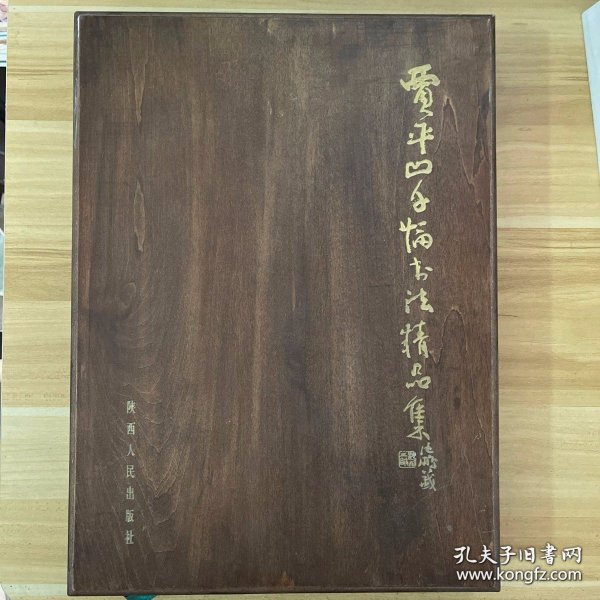 賈平凹手稿书法精品集
陕西人民出版社
孔夫子旧书网
www.kongfz.com